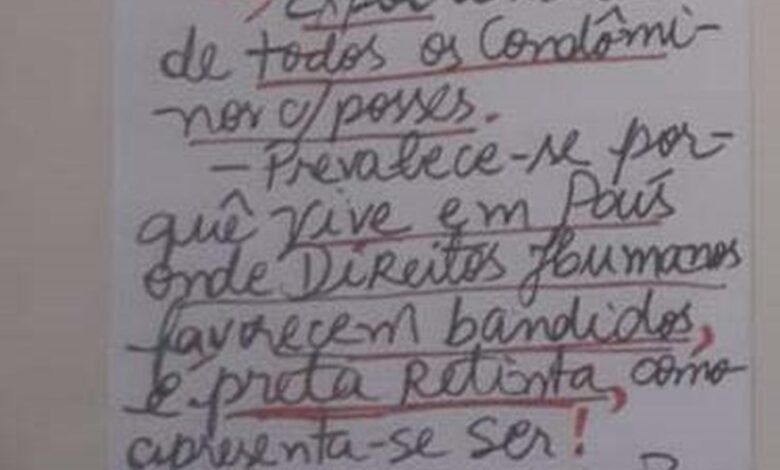 de todos os Condômi-
nos c/posses.
- Prevalece-se por-
quê vive em País
onde Direitos Humanos
favorecem bandidos,
é preta Retinta, como
apresenta-se ser!